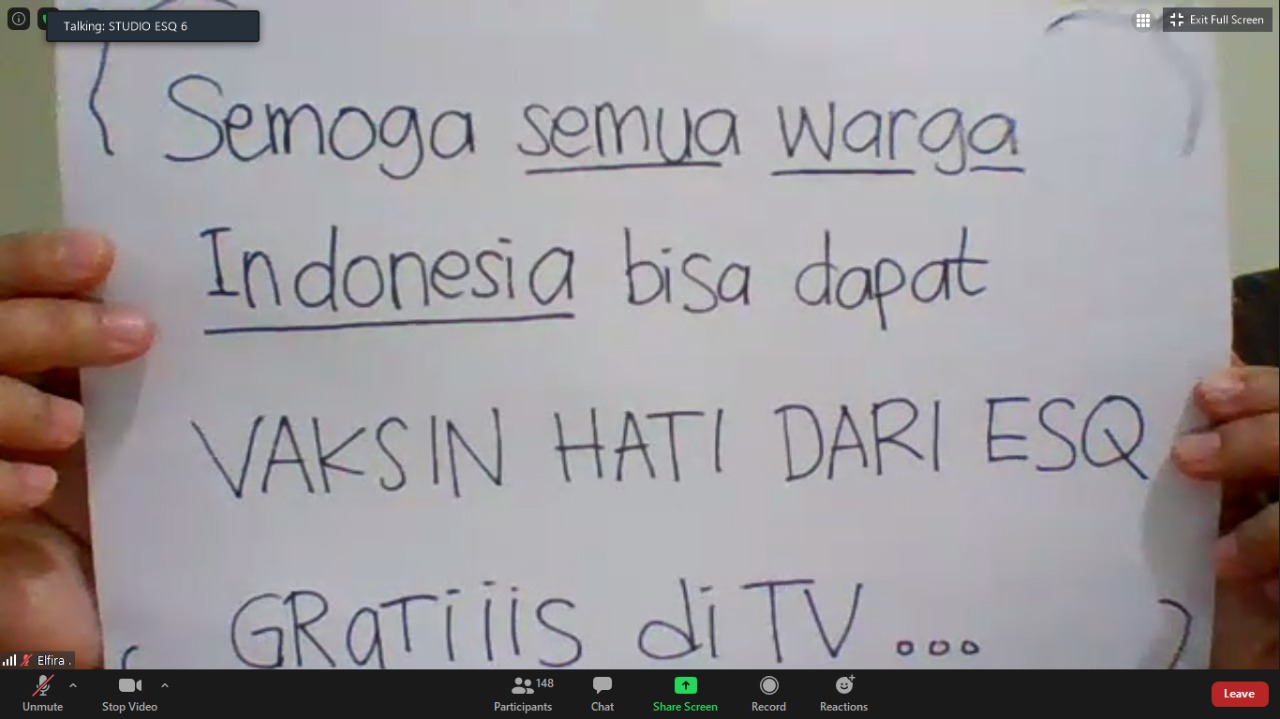 Talking: STUDIO ESQ 6
Exit Full Screen
Semoga semua warga
Indonesia bisa dapat
VAKSIN HATI DARI ESQ
GRaTiiiS di TV ...
Elfira .
Unmute
Stop Video
Participants
148
Chat
Share Screen
Record
Reactions
Leave